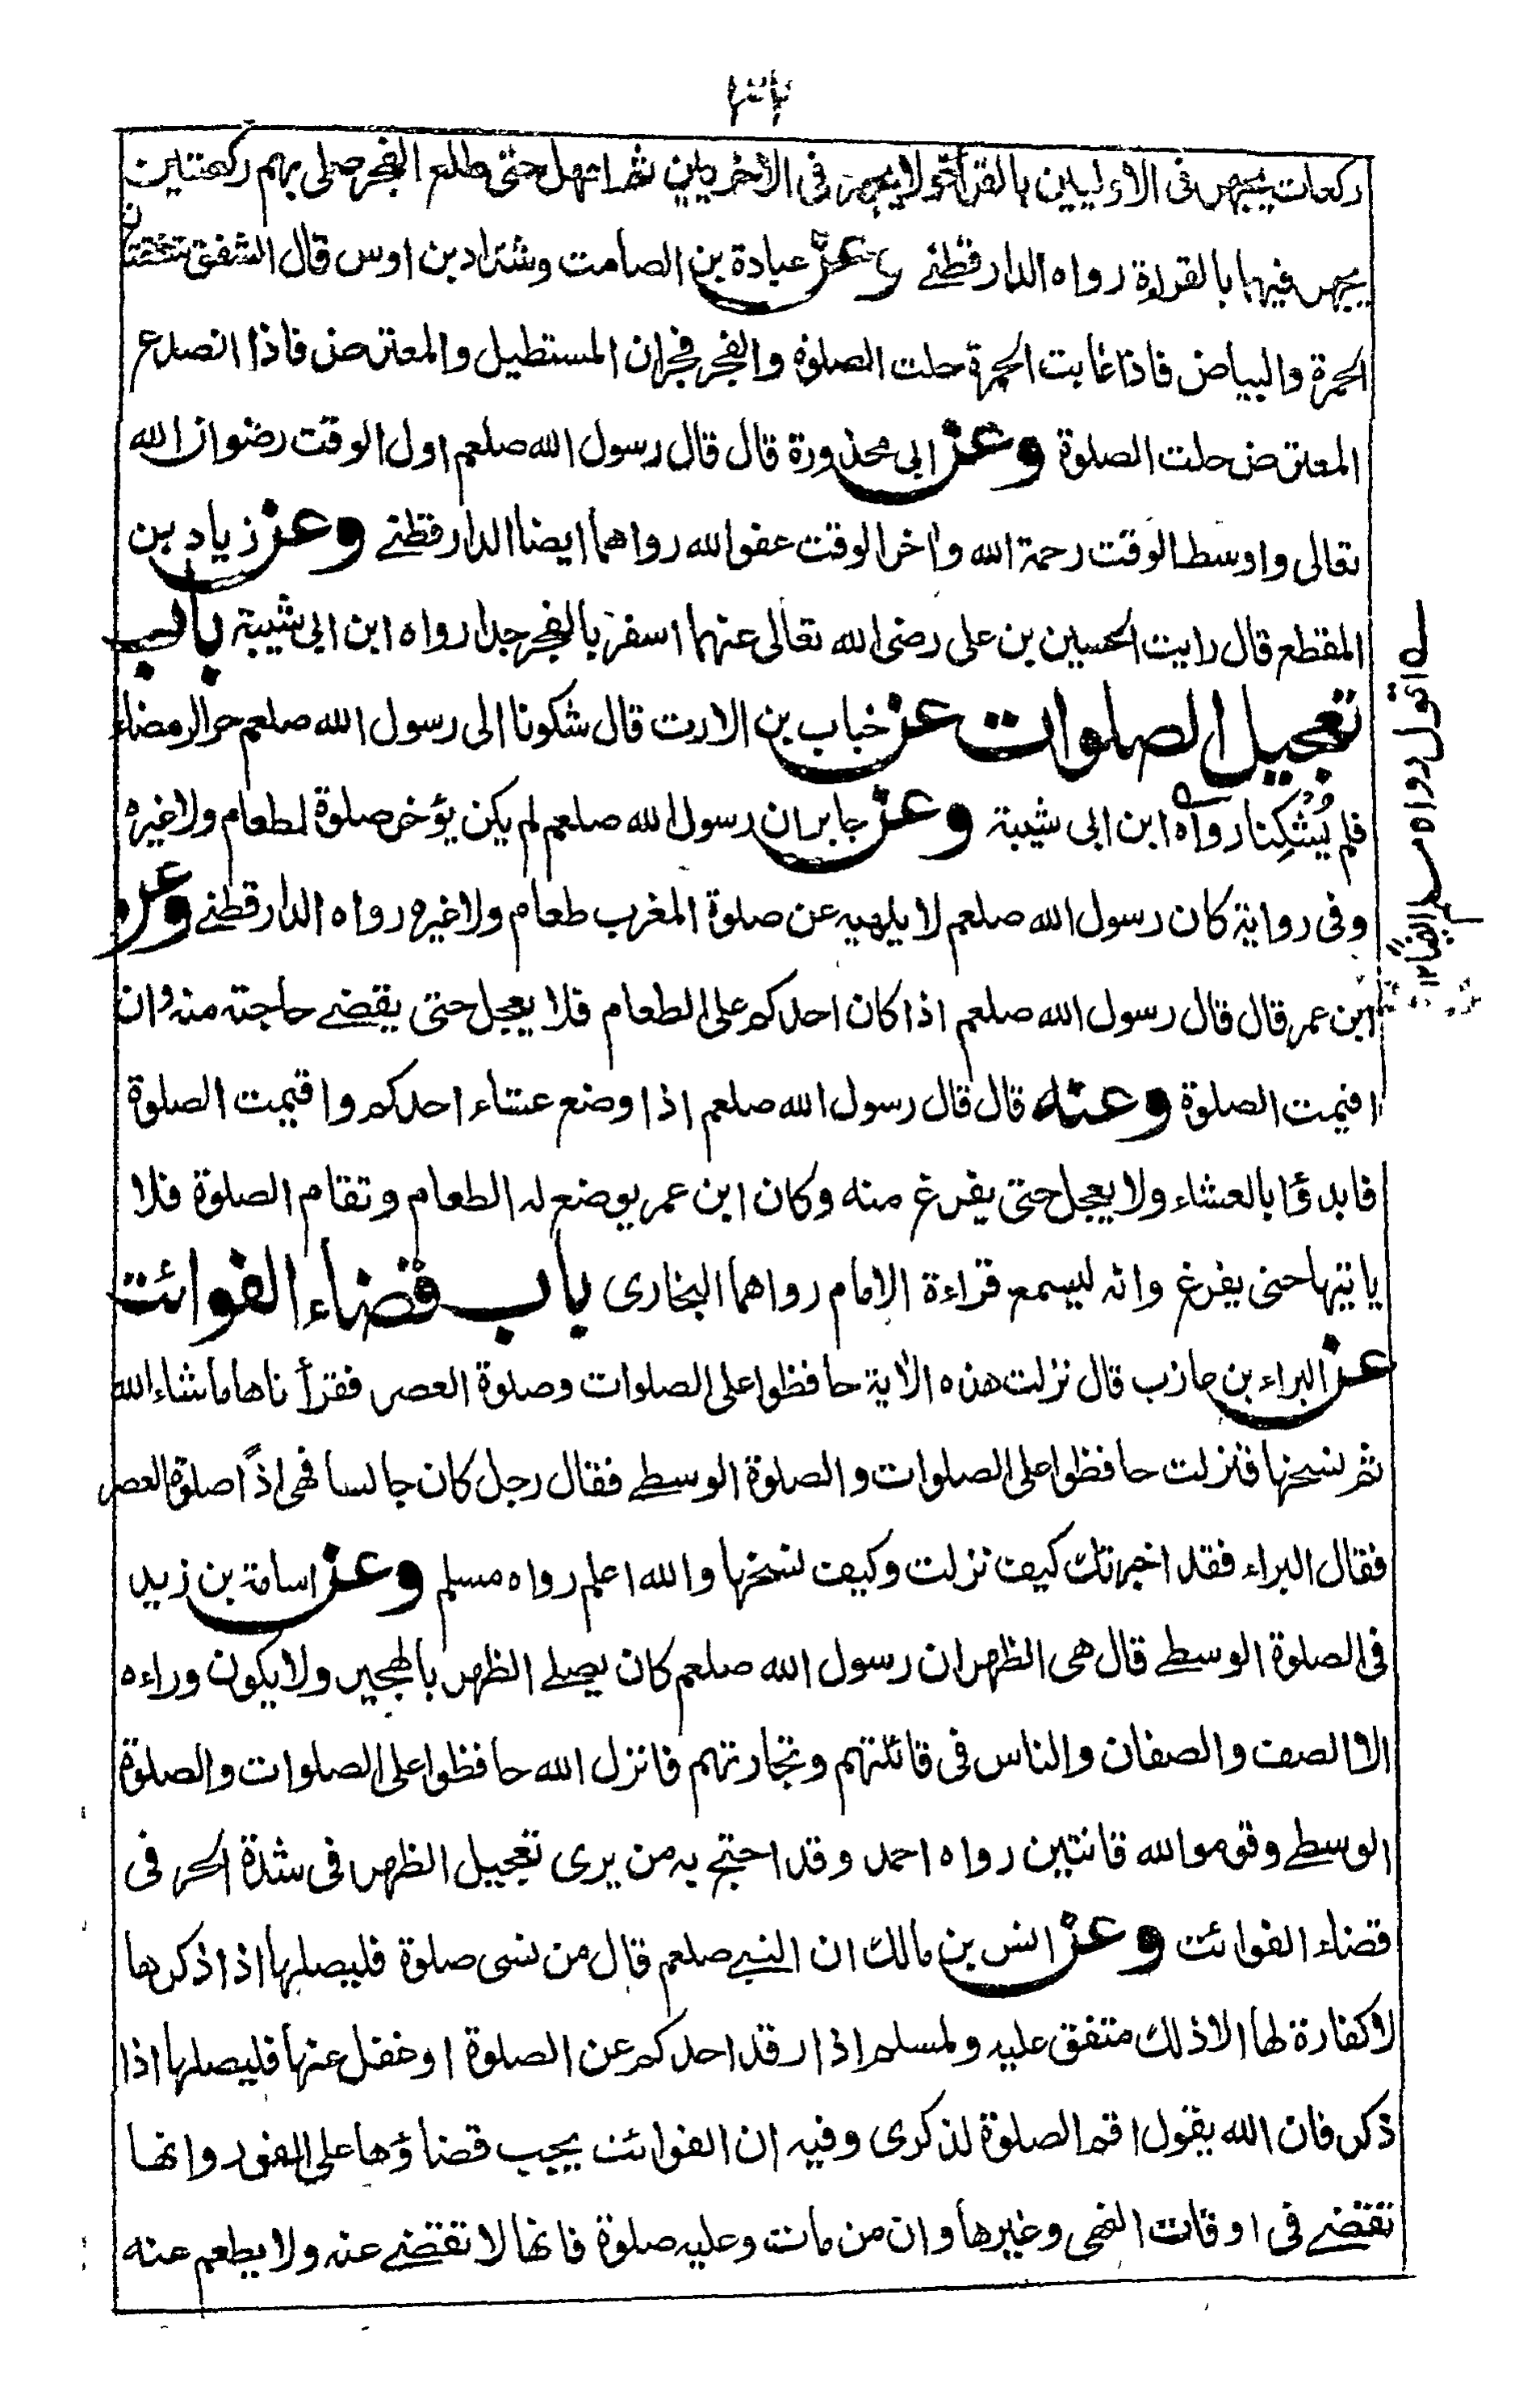 ركعات يجهر فى الاوليين بالقراءة ولا يجهر فى الأخريين ثم امهل حتى طلع الفجر صلى بهم ركعتين
يجهر فيهما بالقراءة رواه الدارقطنے وعن عبادة بن الصامت وشداد بن اوس قال الشفق شفقتان
الحمرة والبياض فاذا غابت الحمرة حلت الصلوة والفجر فجران المستطيل والمعترض فاذا انصدع
المعترض حلت الصلوة وعن ابى محذورة قال قال رسول الله صلعم اول الوقت رضوان الله
تعالى واوسط الوقت رحمة الله واخر الوقت عفو الله رواهما ايضا الدارقطنے وعن زياد بن
المقطع قال رايت الحسين بن على رضى الله تعالى عنهما اسفر بالفجر جدا رواه ابن ابى شيبة باب
تعجيل الصلوات عن خباب بن الارت قال شكونا الى رسول الله صلعم حر الرمضاء
فلم يُشْكِنا رواه ابن ابى شيبة وعن جابر ان رسول الله صلعم لم يكن يؤخر صلوة لطعام ولا غيره
وفى رواية كان رسول الله صلعم لا يلهيه عن صلوة المغرب طعام ولا غيره رواه الدارقطنے وعن
ابن عمر قال قال رسول الله صلعم اذا كان احدكم على الطعام فلا يعجل حتى يقضے حاجته منه وان
اقيمت الصلوة وعنه قال قال رسول الله صلعم اذا وضع عشاء احدكم واقيمت الصلوة
فابدؤا بالعشاء ولا يعجل حتى يفرغ منه وكان ابن عمر يوضع له الطعام وتقام الصلوة فلا
ياتيها حتى يفرغ وانه ليسمع قراءة الامام رواهما البخارى باب قضاء الفوائت
عن البراء بن عازب قال نزلت هذه الاية حافظوا على الصلوات وصلوة العصر فقرأناها ما شاء الله
ثم نسخها فنزلت حافظوا على الصلوات والصلوة الوسطے فقال رجل كان جالسا فهى اذًا صلوة العصر
فقال البراء فقد اخبرتك كيف نزلت وكيف نسخها والله اعلم رواه مسلم وعن اسامة بن زيد
فى الصلوة الوسطے قال هى الظهر ان رسول الله صلعم كان يصلے الظهر بالهجير ولا يكون وراءه
الا الصف والصفان والناس فى قائلتهم وتجارتهم فانزل الله حافظوا على الصلوات والصلوة
الوسطے وقوموا لله قانتين رواه احمد وقد احتج به من يرى تعجيل الظهر فى شدة الحر فى
قضاء الفوائت وعن انس بن مالك ان النبے صلعم قال من نسى صلوة فليصلها اذا ذكرها
لا كفارة لها الا ذلك متفق عليه ولمسلم اذا رقد احدكم عن الصلوة او غفل عنها فليصلها اذا
ذكر فان الله يقول اقم الصلوة لذكرى وفيه ان الفوائت يجب قضاؤها على الفور وانها
تقضے فى اوقات النهى وغيرها وان من مات وعليه صلوة فانها لا تقضے عنه ولا يطعم عنه
اقول رواه مسلم ايضًا ١٢